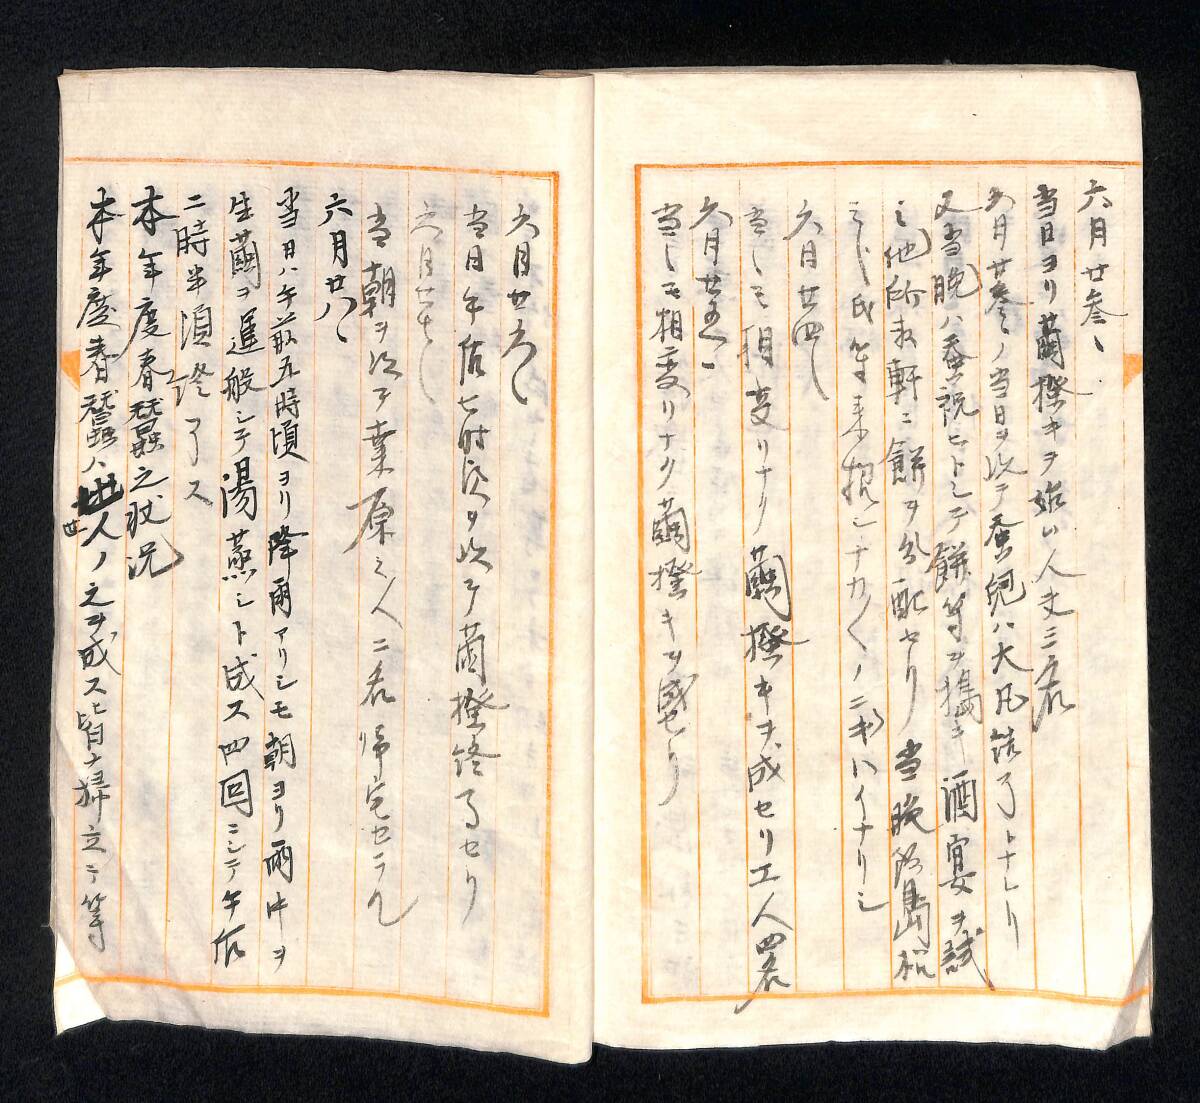 六月廿叁、
当日ヨリ繭掻キヲ始ム人夫三名
六月廿叁、ノ当日ヲ以テ蚕児ハ大凡結了トナレリ
又当晩ハ蚕祝ヒトシテ餅等ヲ搗キ酒宴ヲ試
ミ他所数軒ニ餅ヲ分配セリ当晩飯島
氏等来
六月廿四、
当、モ相変リナリ繭掻キヲ成セリ工人四名
六月廿五、
当、モ相変リナク繭掻キヲ成セリ
六月廿六、
当日午后七時頃ヲ以テ繭掻終了セリ
六月廿七、
当朝ヲ以テ桑原之人二名帰宅セラル
六月廿八、
当日ハ午前五時頃ヨリ降雨アリシモ朝ヨリ雨中ヲ
生繭ヲ運般シテ湯蒸シト成ス四回ニシテ午后
二時半頃終了ス
本年度春蚕之状況
本年度春蚕ハ廿人ノ之ヲ成ス皆ナ掃立テ等